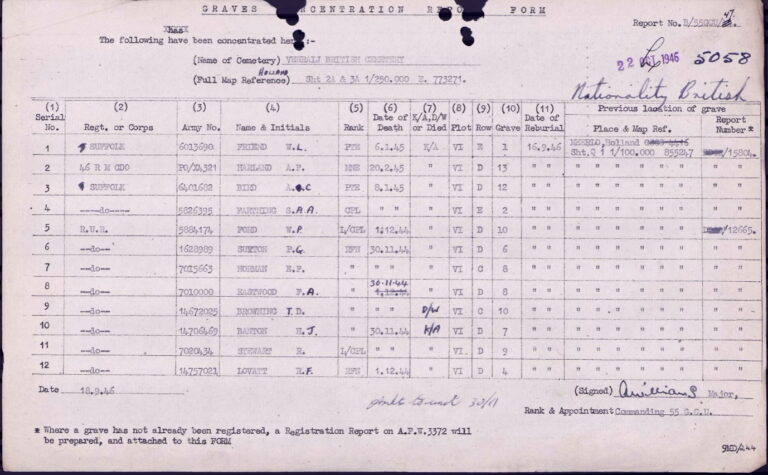 GRAVES CONCENTRATION REPORT FORM
Report No.
The following have been concentrated here :-
has
(Name of Cemetery) VENRAIJ BRITISH CEMETERY
22 OCT 1946 5058
HOLLAND
(Full Map Reference) Sht 2A & 3A 1/250.000 E. 773271.
Nationality British
(1) Serial No. (2) Regt. or Corps (3) Army No. (4) Name & Initials (5) Rank (6) Date of Death (7) K/A, D/W or Died (8) Plot (9) Row (10) Grave (11) Date of Reburial Previous location of grave Place & Map Ref. Report Number *
1 SUFFOLK 6013690 FRIEND W.L. PTE 6.1.45 K/A VI E 1 16.9.46 Holland Sht.Q 1 1/100.000 855247 /15804.
2 46 R M CDO PO/X4321 HARLAND A.P. MNE 20.2.45 " VI D 13 " " " " " " "
3 SUFFOLK 6401682 BIRD C PTE 8.1.45 " VI D 12 " " " " " " "
4 ----do---- 5826395 FARTHING S.A.A. CPL " " VI E 2 " " " " " " "
5 R.U.R. 5884174 FORD W.P. L/CPL 1.12.44 " VI D 10 " " " " " " /12665.
6 --do-- 1628989 P.G. RFN 30.11.44 " VI D 6 " " " " " " "
7 --do-- 7015663 NORMAN E.F. " " " " VI C 8 " " " " " " "
8 --do-- 7010008 EASTWOOD F.A. " 30.11.44 1.12.44 " VI D 8 " " " " " " "
9 --do-- 14672025 BROWNING T.D. " " D/W VI C 10 " " " " " " "
10 --do-- 14706469 H.J. " 30.11.44 K/A VI D 7 " " " " " " "
11 --do-- 7020434 STEWART R. L/CPL " " VI D 9 " " " " " " "
12 --do-- 14757021 LOVATT R.F. RFN 1.12.44 " VI D 4 " " " " " " "
Date 18.9.46
(Signed) Major,
Rank & Appointment Commanding 55 G.C.U.
* Where a grave has not already been registered, a Registration Report on A.F.W.3372 will
be prepared, and attached to this FORM